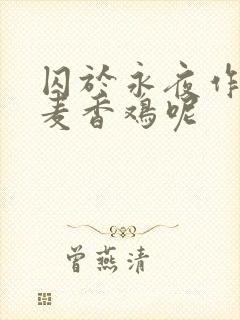 囚於永夜作
麦香鸡呢
曾燕清